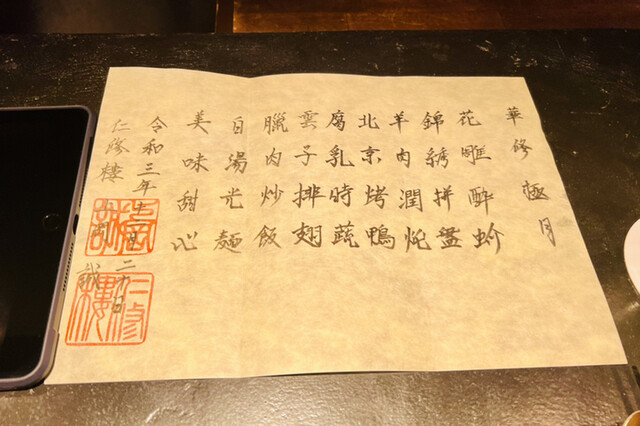 華修 極月
花雕醉蚧
錦繡拼盤
羊肉潤
北京烤鴨
腐乳時蔬
雲子排翅
臘肉炒飯
白湯光麵
美味甜心
令和三年十二月二十日
仁修樓 上岡 誠
仁修樓